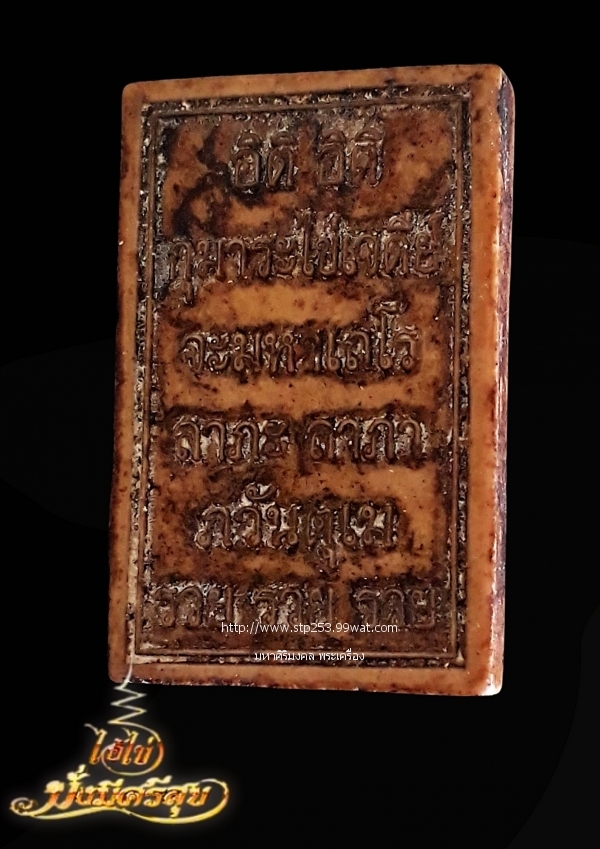 อิติ อิติ
กุมาระไข่เจดีย์
จะมหาเถโร
ลาภะ ลาภา
ภวันตุเม
รวย รวย รวย
http://www.stp253.99wat.com
มหาศิริมงคล พระเครื่อง
ไอ้ไข่
มั่งมีศรีสุข